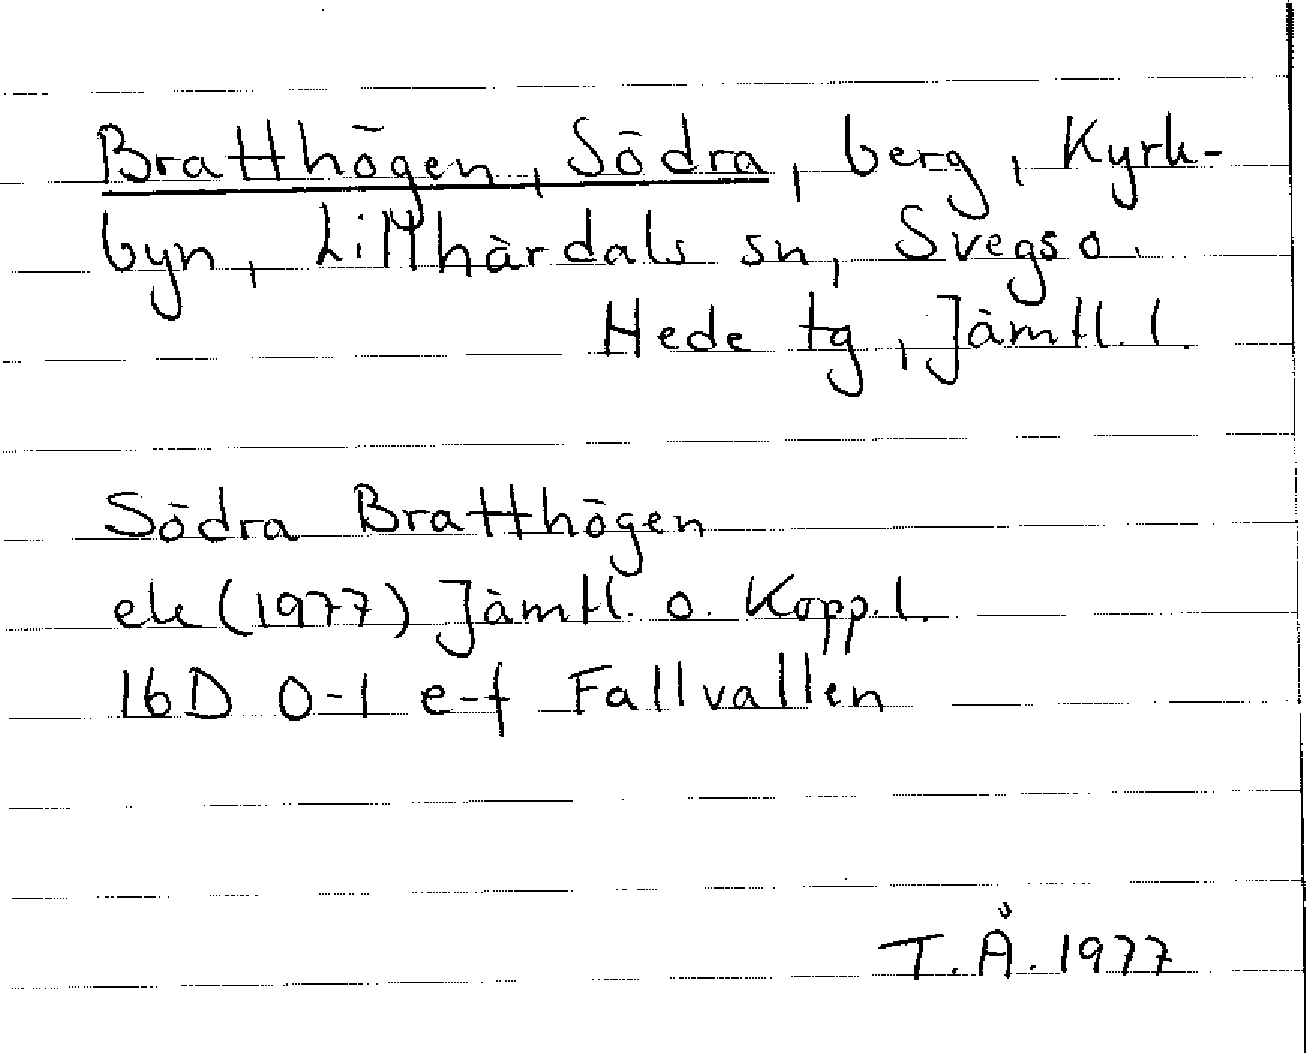 Bratthögen, Södra, berg, Kyrk-
byn, Lillhärdals sn, Svegs o.
Hede tg, Jämtl. l.
Södra Bratthögen
ek (1977) Jämtl. o. Kopp.l.
16D 0-1 e-f Fallvallen
T.Å. 1977